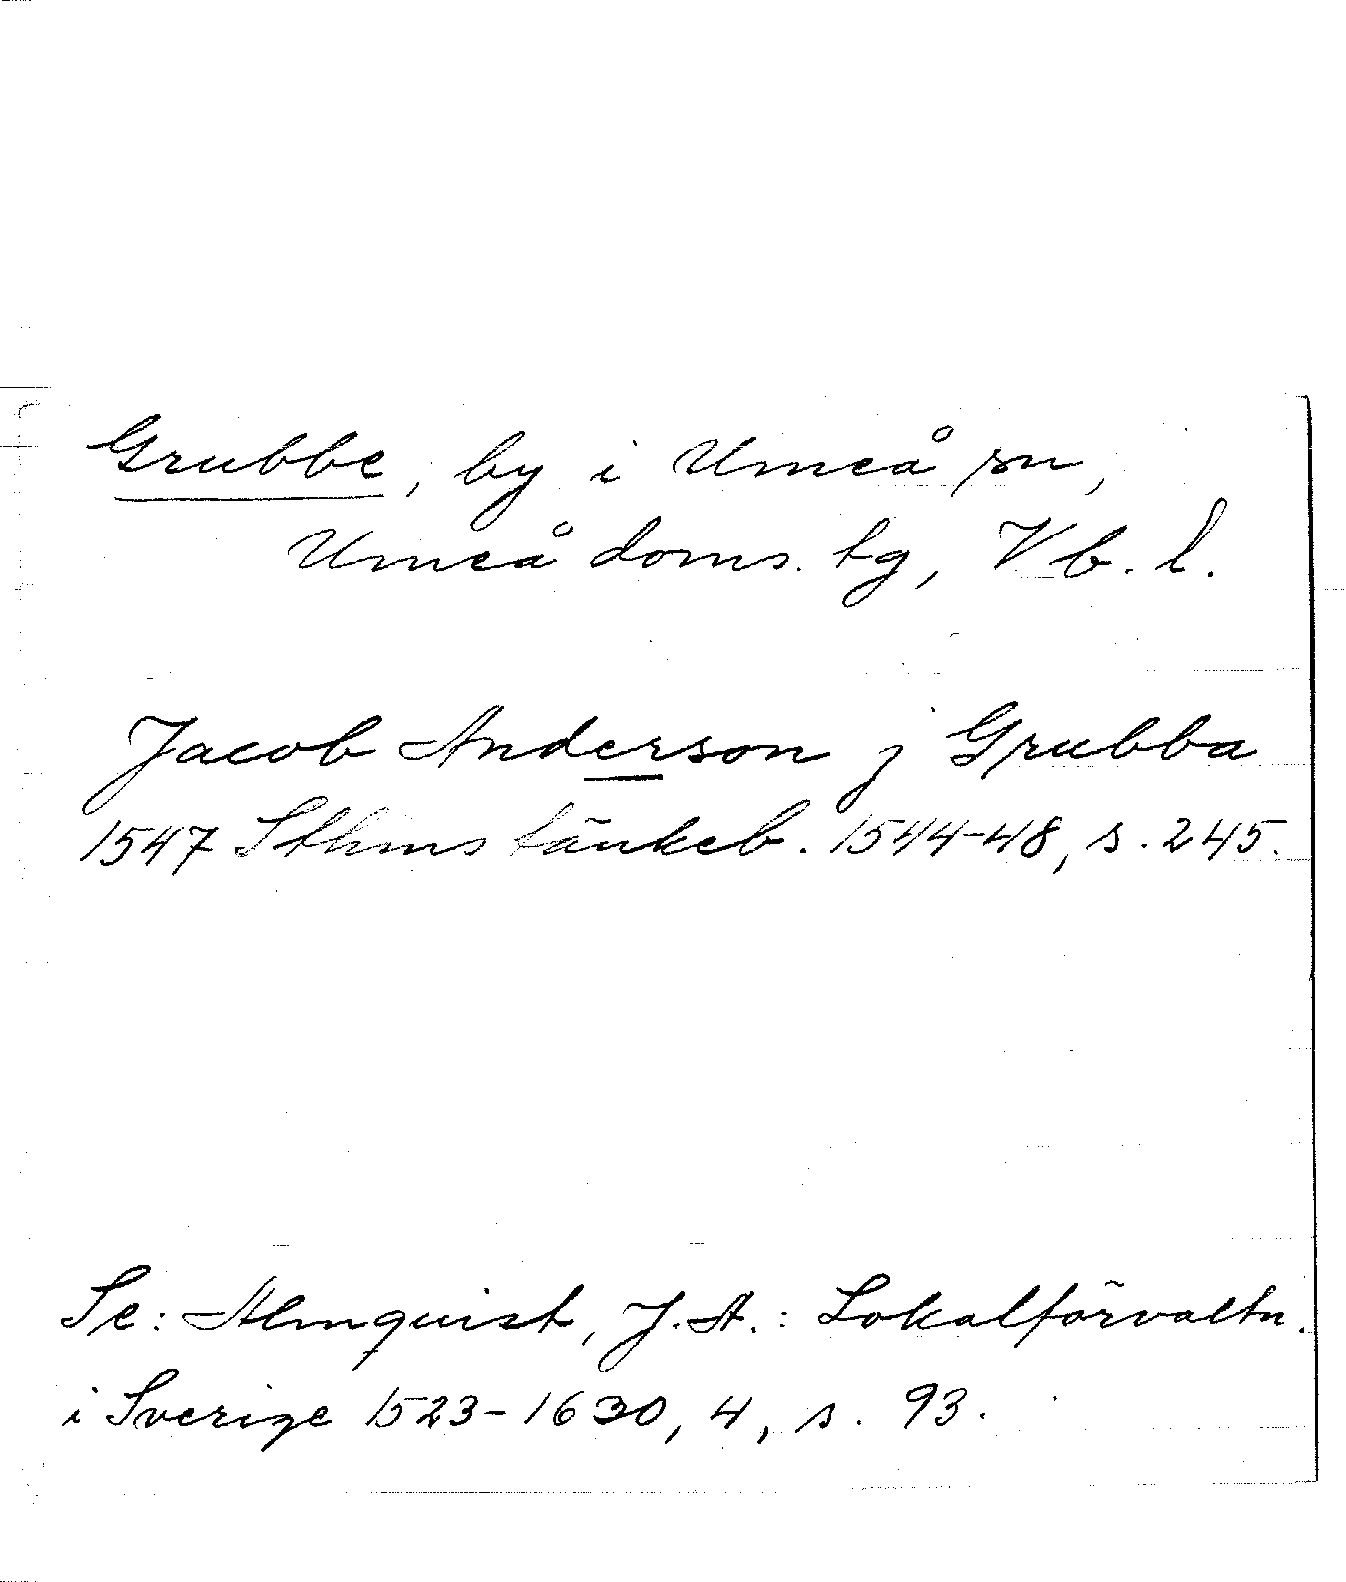 Grubbe, by i Umeå sn,
Umeå doms. tg, Vb. l.
Jacob Anderson j Grubba
1547 Sthms tänkeb. 1544-48, s. 245.
Se: Almquist, J. A.: Lokalförvaltn.
i Sverige 1523-1630, 4, s. 93.